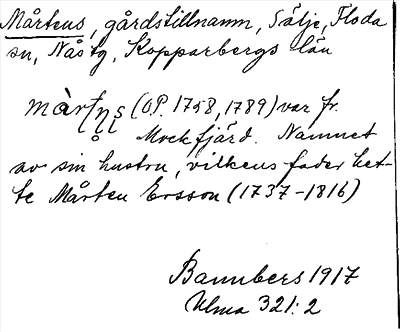 Mårtens, gårdstillnamn, Sälje, Floda
sn, Nås tg, Kopparbergs län
(OP. 1758, 1789) var fr.
Mockfjärd. Namnet
av sin hustru, vilkens fader het-
te Mårten Ersson (1737-1816)
Bannbers 1917
Ulma 321:2